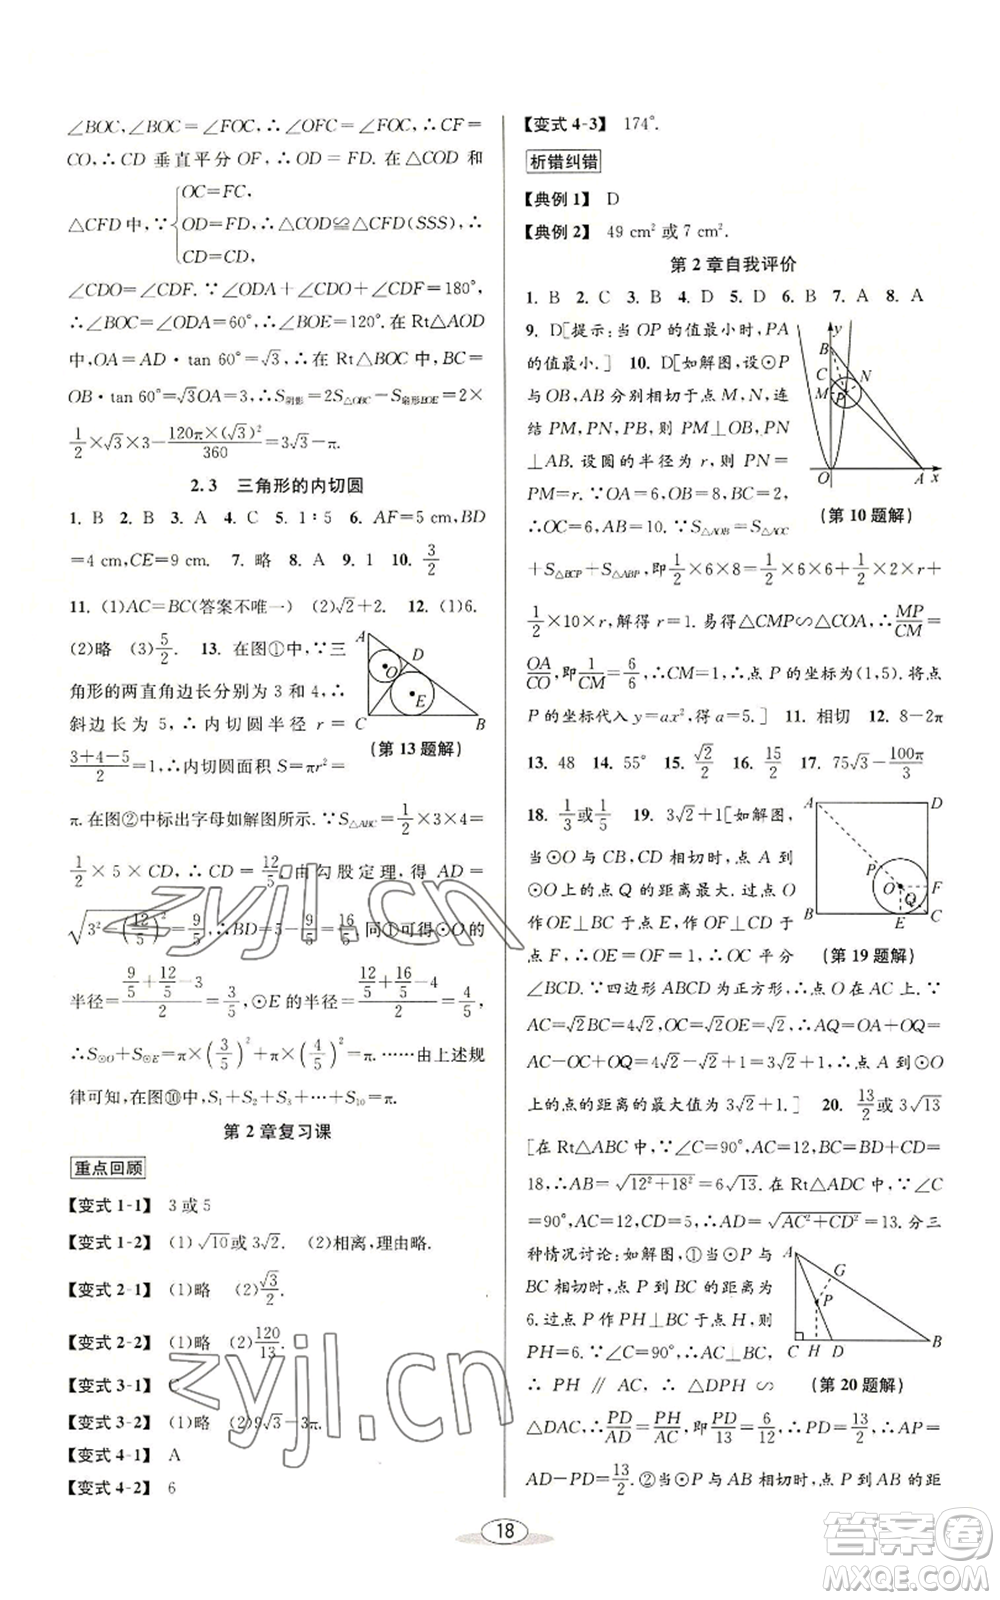 ∠BOC,∠BOC=∠FOC,∴∠OFC=∠FOC,∴CF=
CO,∴CD 垂直平分 OF,∴OD=FD. 在△COD 和
△CFD 中,∵{OC=FC, OD=FD, CD=CD ∴△COD≌△CFD(SSS),∴
∠CDO=∠CDF. ∵∠ODA+∠CDO+∠CDF=180°,
∴∠BOC=∠ODA=60°,∴∠BOE=120°. 在 Rt△AOD
中,OA=AD·tan 60°=√3,∴在 Rt△BOC 中,BC=
OB·tan 60°=√3OA=3,∴S阴影=2S△OBC-S扇形BOE=2×
1/2×√3×3-120π×(√3)²/360=3√3-π.
2.3 三角形的内切圆
1. B 2. B 3. A 4. C 5. 1∶5 6. AF=5 cm,BD
=4 cm,CE=9 cm. 7. 略 8. A 9. 1 10. 3/2
11. (1)AC=BC(答案不唯一) (2)√2+2. 12. (1)6.
(2)略 (3)5/2. 13. 在图①中,∵三
角形的两直角边长分别为3和4,∴
斜边长为5,∴内切圆半径 r=
3+4-5/2=1,∴内切圆面积 S=πr²=
A
D
O
E
C
B
(第13题解)
π. 在图②中标出字母如解图所示. ∵S△ABC=1/2×3×4=
1/2×5×CD,∴CD=12/5. 由勾股定理,得 AD=
√3²-(12/5)²=9/5,∴BD=5-9/5=16/5. 同①可得⊙O的
半径=9/5+12/5-3/2=3/5,⊙E 的半径=12/5+16/5-4/2=4/5,
∴S⊙O+S⊙E=π×(3/5)²+π×(4/5)²=π. ……由上述规
律可知,在图⑩中,S₁+S₂+…+S₁₀=π.
第2章复习课
重点回顾
【变式1-1】 3或5
【变式1-2】 (1)√10或3√2. (2)相离,理由略.
【变式2-1】 (1)略 (2)√3/2.
【变式2-2】 (1)略 (2)120/13.
【变式3-1】 C
【变式3-2】 (1)略 (2)9√3-3π.
【变式4-1】 A
【变式4-2】 6
【变式4-3】 174°.
析错纠错
【典例1】 D
【典例2】 49 cm² 或 7 cm².
第2章自我评价
1. B 2. C 3. B 4. D 5. D 6. B 7. A 8. A
9. D[提示:当 OP 的值最小时,PA
的值最小.] 10. D[如解图,设⊙P
与 OB,AB 分别相切于点 M,N,连
结 PM,PN,则 PM⊥OB,PN
⊥AB. 设圆的半径为 r,则 PN=
PM=r. ∵OA=6,OB=8,
∴OC=6,AB=10. ∵S△AOB=S△AOC
y
B
C
M
P
N
O
A
x
(第10题解)
+S△BCP+S△ABP,即1/2×6×8=1/2×6×6+1/2×2×r+
1/2×10×r,解得 r=1. 易得△CMP∽△COA,∴MP/CM=
OA/CO,即1/CM=6/6,∴CM=1,∴点 P 的坐标为(1,5). 将点
P 的坐标代入 y=ax²,得 a=5.] 11. 相切 12. 8-2π
13. 48 14. 55° 15. √2/2 16. 15/2 17. 75√3-100π/3
18. 1/3或1/5 19. 3√2+1[如解图,
当⊙O与CB,CD相切时,点 A 到
⊙O上的点 Q 的距离最大. 过点 O
作 OE⊥BC 于点 E,OF⊥CD 于
点 F,∴OE=OF=1,∴OC 平分
A
D
P
O
F
Q
B
E
C
(第19题解)
∠BCD. ∵四边形 ABCD 为正方形,∴点 O 在 AC 上. ∵
AC=√2BC=4√2,OC=√2OE=√2,∴AQ=OA+OQ=
AC-OC+OQ=4√2-√2+1=3√2+1,∴点 A 到⊙O
上的点的距离的最大值为3√2+1.] 20. 13/2或3√13
[在 Rt△ABC 中,∵∠C=90°,AC=12,BC=BD+CD=
18,∴AB=√12²+18²=6√13. 在 Rt△ADC 中,∵∠C
=90°,AC=12,CD=5,∴AD=√AC²+CD²=13. 分三
种情况讨论:如解图,①当⊙P 与
BC 相切时,点 P 到 BC 的距离为
6. 过点 P 作 PH⊥BC 于点 H,则
PH=6. ∵∠C=90°,∴AC⊥BC,
∴PH∥AC,∴△DPH∽
A
G
P
C
H
D
B
(第20题解)
△DAC,∴PD/AD=PH/AC=PD/13=6/12,∴PD=13/2,∴AP=
AD-PD=13/2. ②当⊙P 与 AB 相切时,点 P 到 AB 的距
18
zyjl.cn
zyjl.cn
答案圈
MXQE.COM